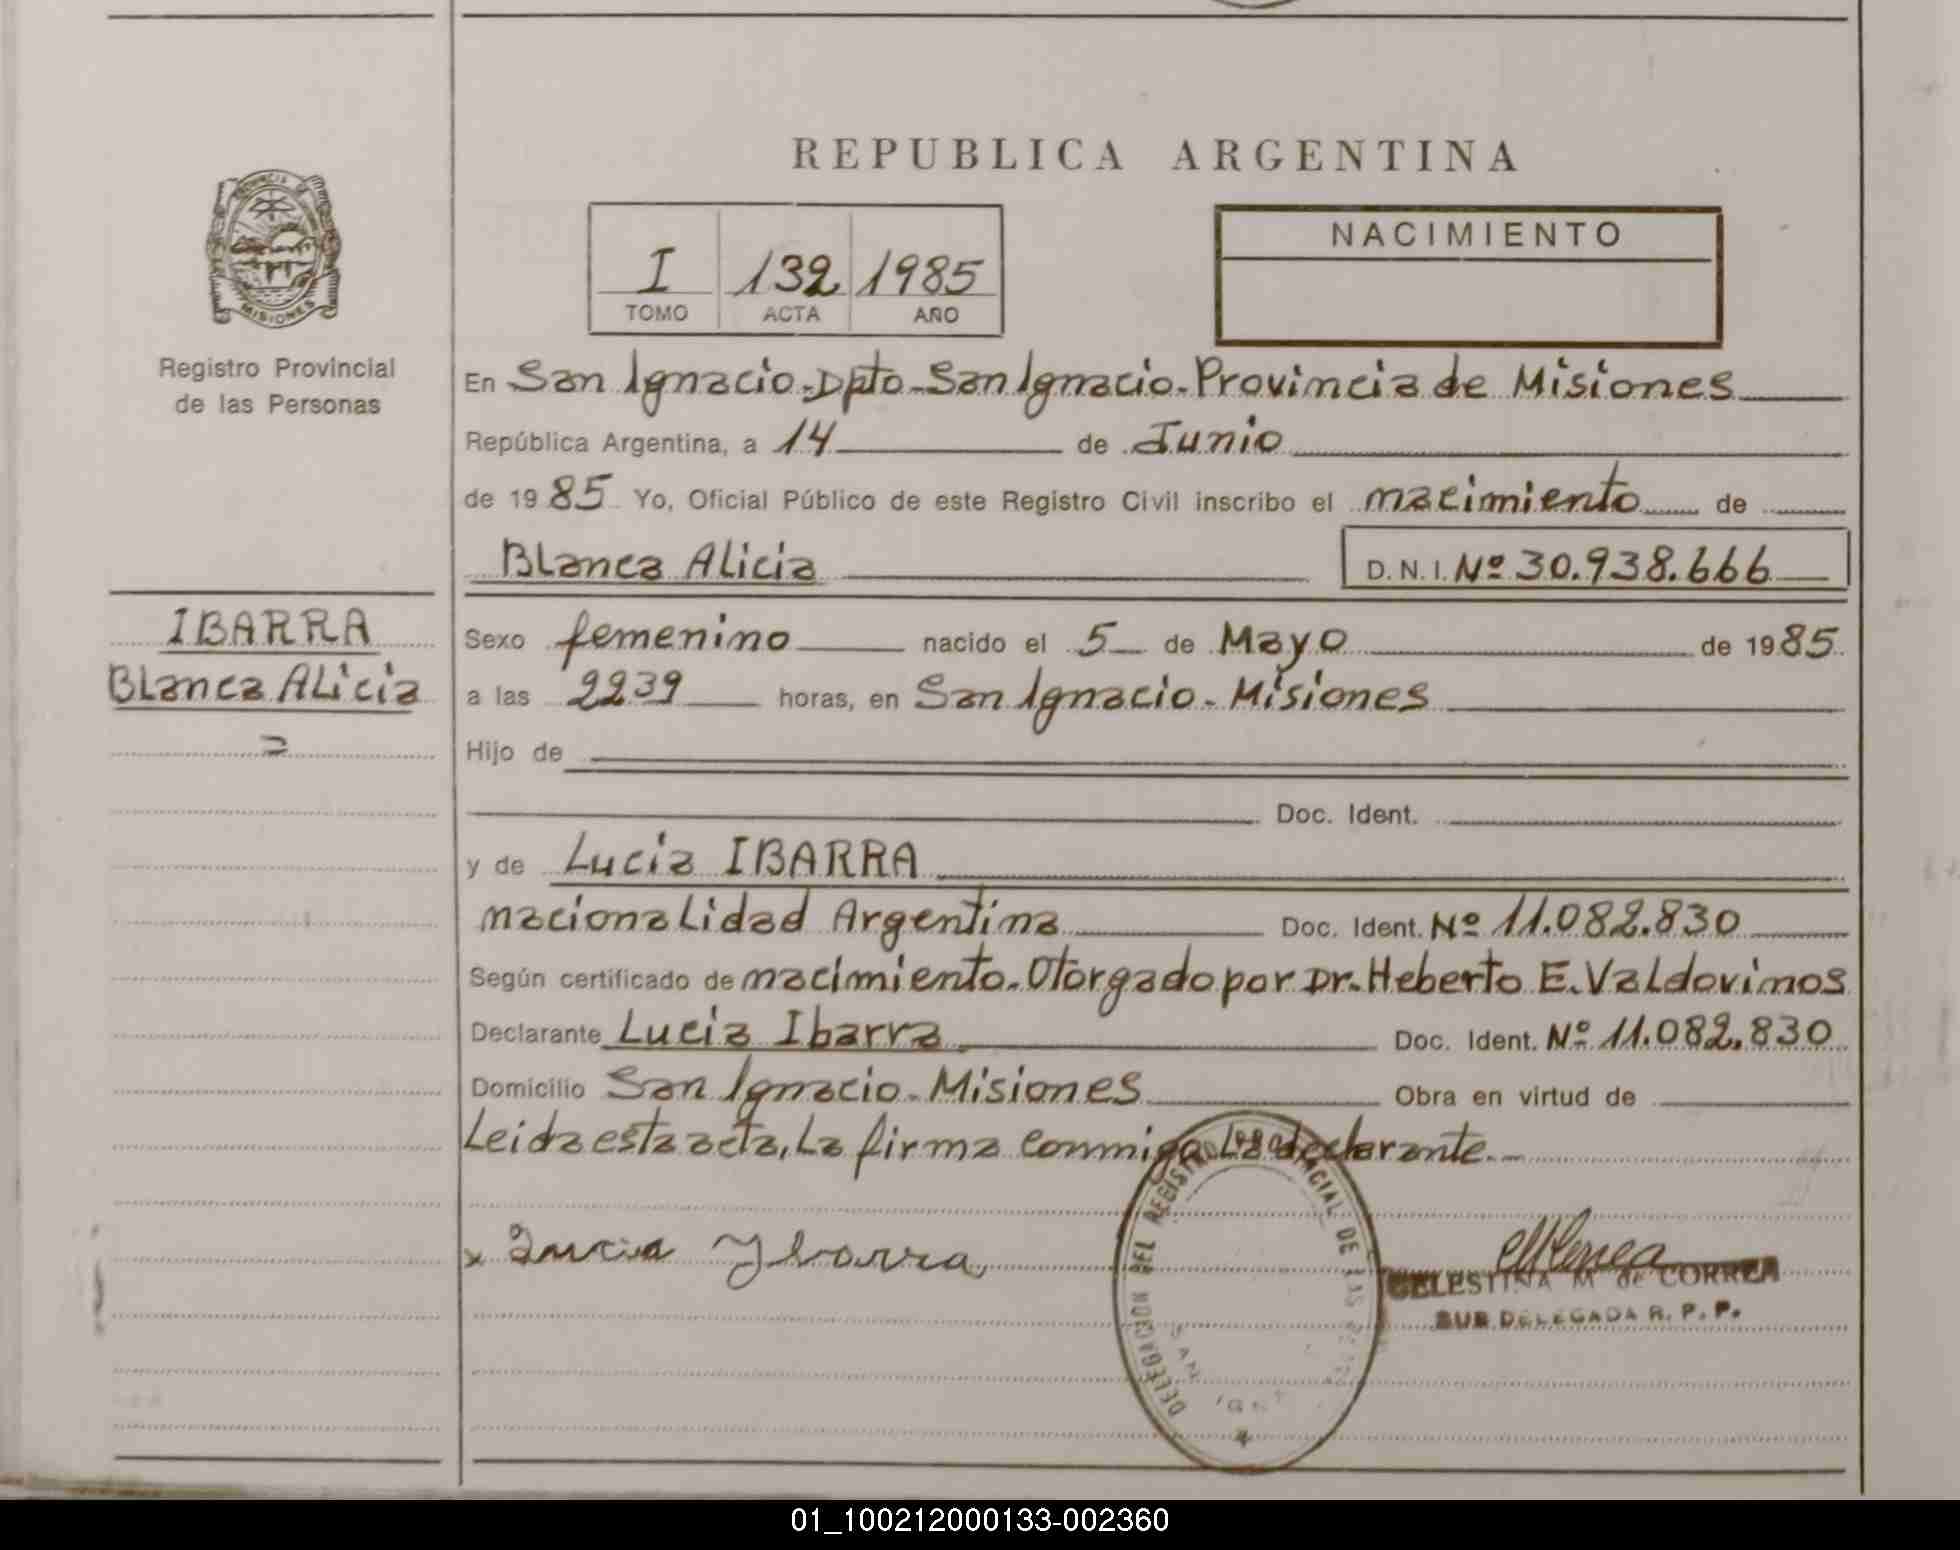 REPUBLICA ARGENTINA
PROVINCIA DE
MISIONES
Registro Provincial
de las Personas
I 132 1985
TOMO ACTA AÑO
NACIMIENTO
En San Ignacio-Dpto-San Ignacio-Provincia de Misiones
República Argentina, a 14 de Junio
de 1985 Yo, Oficial Público de este Registro Civil inscribo el nacimiento de
Blanca Alicia D.N.I. Nº 30.938.666
IBARRA
Blanca Alicia
Sexo femenino nacido el 5 de Mayo de 1985
a las 2239 horas, en San Ignacio-Misiones
Hijo de
Doc. Ident.
y de Lucia IBARRA
nacionalidad Argentina Doc. Ident. Nº 11.082.830
Según certificado de nacimiento-Otorgado por Dr. Heberto E. Valdovinos
Declarante Lucia Ibarra Doc. Ident. Nº 11.082.830
Domicilio San Ignacio-Misiones Obra en virtud de
Leida esta acta, La firma conmigo La declarante.-
x Lucia Ybarra
DELEGACION DEL REGISTRO PROVINCIAL DE LAS
SAN IGN
CELESTINA M de CORREA
SUB DELEGADA R. P. P.
01_100212000133-002360